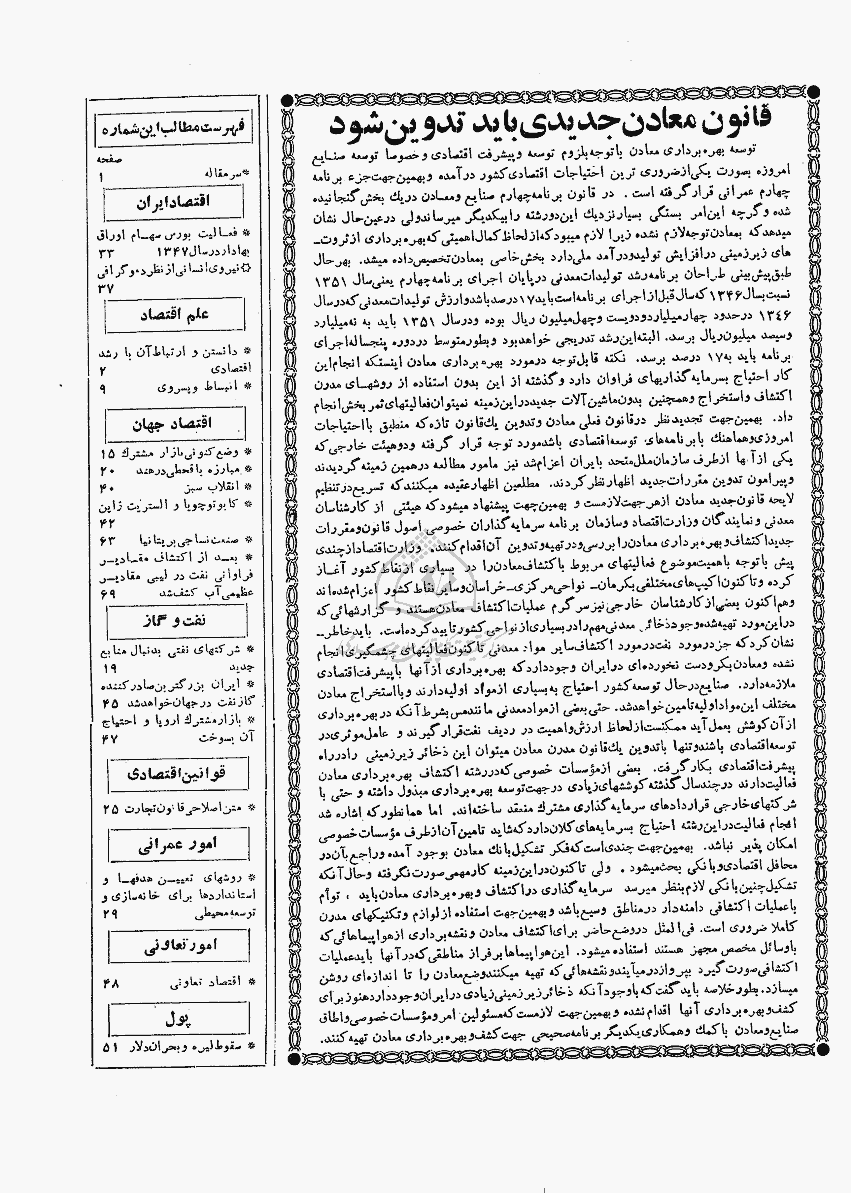 قانون معادن جدیدی باید تدوین شود
توسعه بهره برداری معادن با توجه بلزوم توسعه و پیشرفت اقتصادی و خصوصا توسعه صنایع
امروزه بصورت یکی از ضروری ترین احتیاجات اقتصادی کشور در آمده و بهمین جهت جزء برنامه
چهارم عمرانی قرار گرفته است . در قانون برنامه چهارم صنایع و معادن در یک بخش گنجانیده
شده و گرچه این امر بستگی بسیار نزدیک این دو رشته را بیکدیگر میرساند ولی در عین حال نشان
میدهد که بمعادن توجه لازم نشده زیرا لازم میبود که از لحاظ کمال اهمیتی که بهره برداری از ثروت ـ
های زیر زمینی در افزایش تولید و در آمد ملی دارد بخش خاصی بمعادن تخصیص داده میشد. بهر حال
طبق پیش بینی طراحان برنامه رشد تولیدات معدنی در پایان اجرای برنامه چهارم یعنی سال ۱۳۵۱
نسبت بسال ۱۳۴۶ که سال قبل از اجرای برنامه است باید ۱۷ درصد باشد و ارزش تولیدات معدنی که در سال
۱۳۴۶ در حدود چهار میلیارد و دویست و چهل میلیون ریال بوده و در سال ۱۳۵۱ باید به نه میلیارد
و سیصد میلیون ریال برسد. البته این رشد تدریجی خواهد بود و بطور متوسط در دوره پنجساله اجرای
برنامه باید به ۱۷ درصد برسد. نکته قابل توجه در مورد بهره برداری معادن اینستکه انجام این
کار احتیاج بسرمایه گذاریهای فراوان دارد و گذشته از این بدون استفاده از روشهای مدرن
اکتشاف و استخراج و همچنین بدون ماشین آلات جدید در این زمینه نمیتوان فعالیتهای ثمر بخش انجام
داد. بهمین جهت تجدید نظر در قانون فعلی معادن و تدوین یک قانون تازه که منطبق با احتیاجات
امروزی و هماهنگ با برنامه های توسعه اقتصادی باشد مورد توجه قرار گرفته و دو هیئت خارجی که
یکی از آنها از طرف سازمان ملل متحد بایران اعزام شد نیز مامور مطالعه در همین زمینه گردیدند
و پیرامون تدوین مقررات جدید اظهار نظر کردند. مطلعین اظهار عقیده میکنند که تسریع در تنظیم
لایحه قانون جدید معادن از هر جهت لازمست و بهمین جهت پیشنهاد میشود که هیئتی از کارشناسان
معدنی و نمایندگان وزارت اقتصاد و سازمان برنامه سرمایه گذاران خصوصی اصول قانون و مقررات
جدید اکتشاف و بهره برداری معادن را بررسی و در تهیه و تدوین آن اقدام کنند. وزارت اقتصاد از چندی
پیش با توجه باهمیت موضوع فعالیتهای مربوط باکتشاف معادن را در بسیاری از نقاط کشور آغاز
کرده و تاکنون اکیپ های مختلفی بکرمان ـ نواحی مرکزی ـ خراسان و سایر نقاط کشور اعزام شده اند
و هم اکنون بعضی از کارشناسان خارجی نیز سرگرم عملیات اکتشاف معادن هستند و گزارشهائی که
در این مورد تهیه شده وجود ذخائر معدنی مهم را در بسیاری از نواحی کشور تایید کرده است. باید خاطر ـ
نشان کرد که جز در مورد نفت در مورد اکتشاف سایر مواد معدنی تاکنون فعالیتهای چشمگیری انجام
نشده و معادن بکر و دست نخورده ای در ایران وجود دارد که بهره برداری از آنها با پیشرفت اقتصادی
ملازمه دارد. صنایع در حال توسعه کشور احتیاج به بسیاری از مواد اولیه دارند و با استخراج معادن
مختلف این مواد اولیه تامین خواهد شد. حتی بعضی از مواد معدنی ما نند مس بشرط آنکه در بهره برداری
از آن کوشش بعمل آید ممکنست از لحاظ ارزش و اهمیت در ردیف نفت قرار گیرند و عامل موثری در
توسعه اقتصادی باشند و تنها با تدوین یک قانون مدرن معادن میتوان این ذخائر زیر زمینی را در راه
پیشرفت اقتصادی بکار گرفت. بعضی از مؤسسات خصوصی که در رشته اکتشاف بهره برداری معادن
فعالیت دارند در چند سال گذشته کوششهای زیادی در جهت توسعه بهره برداری مبذول داشته و حتی با
شرکتهای خارجی قراردادهای سرمایه گذاری مشترک منعقد ساخته اند. اما همانطور که اشاره شد
انجام فعالیت در این رشته احتیاج بسرمایه های کلان دارد که شاید تامین آن از طرف مؤسسات خصوصی
امکان پذیر نباشد. بهمین جهت چندی است که فکر تشکیل بانک معادن بوجود آمده و راجع بآن در
محافل اقتصادی و بانکی بحث میشود . ولی تاکنون در این زمینه کار مهمی صورت نگرفته و حال آنکه
تشکیل چنین بانکی لازم بنظر میرسد سرمایه گذاری در اکتشاف و بهره برداری معادن باید ، توأم
با عملیات اکتشافی دامنه دار در مناطق وسیع باشد و بهمین جهت استفاده از لوازم و تکنیکهای مدرن
کاملا ضروری است. فی المثل در وضع حاضر برای اکتشاف معادن و نقشه برداری از هواپیماهائی که
با وسائل مخصص مجهز هستند استفاده میشود. این هواپیماها بر فراز مناطقی که در آنها باید عملیات
اکتشافی صورت گیرد بپرواز در میآیند و نقشه هائی که تهیه میکنند وضع معادن را تا اندازه ای روشن
میسازد. بطور خلاصه باید گفت که با وجود آنکه ذخائر زیر زمینی زیادی در ایران وجود دارد هنوز برای
کشف و بهره برداری آنها اقدام نشده و بهمین جهت لازمست که مسئولین امر و مؤسسات خصوصی و اطاق
صنایع و معادن با کمک و همکاری یکدیگر برنامه صحیحی جهت کشف و بهره برداری معادن تهیه کنند.
فهرست مطالب این شماره
صفحه
* سر مقاله ۱
اقتصاد ایران
* فعالیت بورس سهام اوراق
بهادار در سال ۱۳۴۷ ۳۳
* نیروی انسانی از نظر ده وگرافی
۳۷
علم اقتصاد
* دانستن و ارتباط آن با رشد
اقتصادی ۲
* انبساط و پسروی ۹
اقتصاد جهان
* وضع کنونی بازار مشترک ۱۵
* مبارزه با قحطی در هند ۲۰
* انقلاب سبز ۴۰
* کابوتوچویا و الستریت ژاپن
۴۲
* صنعت نساجی بریتانیا ۶۳
* بعد از اکتشاف مقادیر
فراوانی نفت در لیبی مقادیر
عظیمی آب کشف شد ۶۹
نفت و گاز
* شرکتهای نفتی بدنبال منابع
جدید ۱۹
* ایران بزرگترین صادر کننده
گاز نفت در جهان خواهد شد ۴۵
* بازار مشترک اروپا و احتیاج
آن بسوخت ۴۷
قوانین اقتصادی
* متن اصلاحی قانون تجارت ۲۵
امور عمرانی
* روشهای تعیین هدفها و
استانداردها برای خانه سازی و
توسعه محیطی ۲۹
امور تعاونی
* اقتصاد تعاونی ۴۸
پول
* سقوط لیره و بحران دلار ۵۱